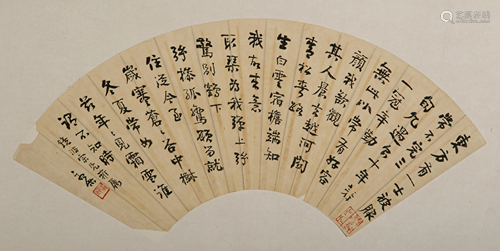 東方有一士被服
常不完三
旬九遇食十年著
一冠辛勤
無此比常有好容
顏我欲觀
其人晨去越河關
青松夾路
生白雲宿檐端知
我故来意
取琴為我彈上弦
驚別鶴下
弦操孤鸞願留就
住從今至
歲寒蒼蒼谷中樹
冬夏常如
茲年年見霜雪誰
謂不知時